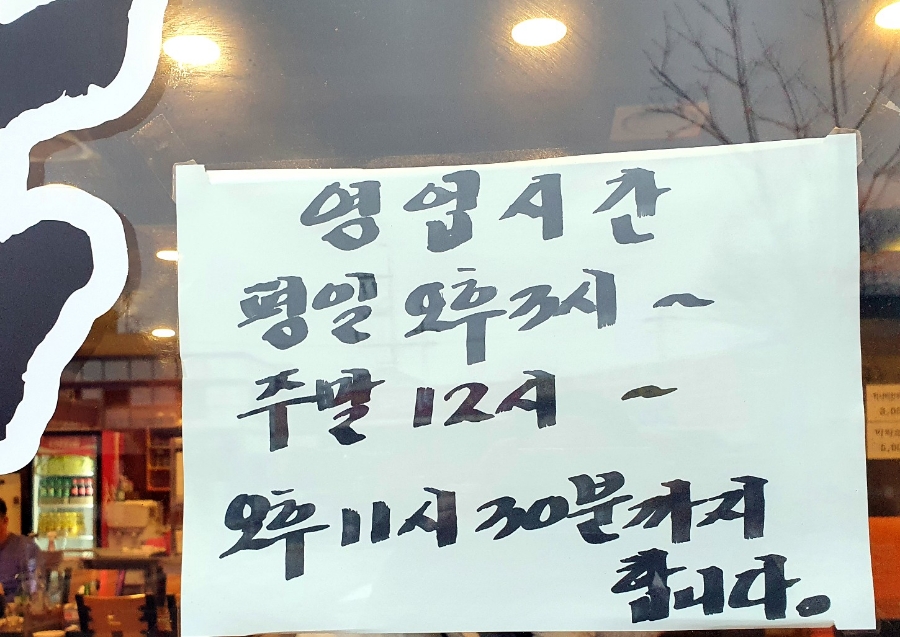 영업시간
평일 오후3시 ~
주말 12시 ~
오후 11시 30분까지
합니다.